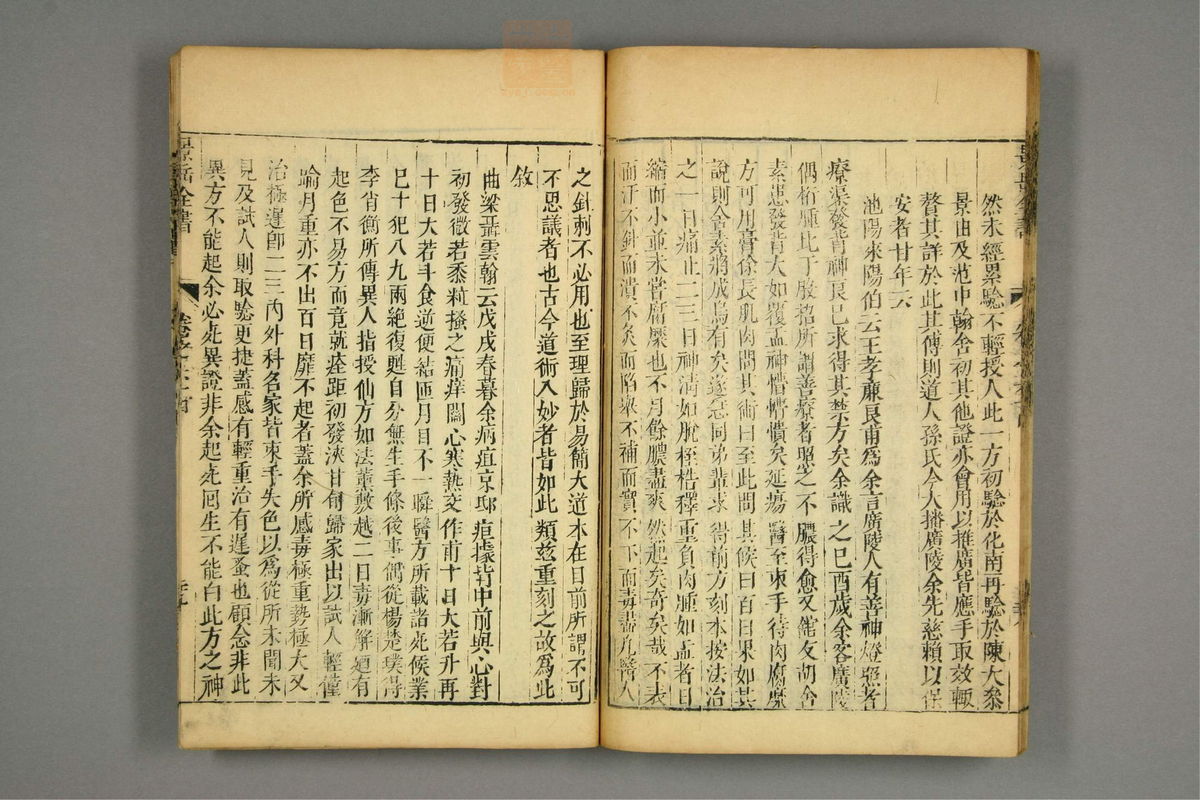 然未經累驗不輕授人此一方初驗於化南再驗於陳大參
景由及范中翰含初其他證亦曾用以推廣皆應手取效輒
贅其詳於此其傳則道人孫氏今人播廣陵余先慈賴以保
安者廿年云
池陽來陽伯云王孝亷良甫為余言廣陵人有善神燈照者
療渠發背神良巳求得其禁方矣余識之己酉歲余客廣陵
偶桁腫比丁股招所謂善療者照之不膿得愈又館友胡含
素患發背大如覆盂神懵懵憒矣延瘍醫至束手待肉腐糜
方可用膏徐長肌肉問其術曰至此問其候曰百日果如其
說則含素將成烏有矣遂急同弟輩求得前方刻本按法治
之一日痛止二三日神清如脫桎梏釋重負肉腫如盂者日
縮而小並未嘗腐糜也不月餘膿盡爽然起矣竒矣哉不表
而汗不針而潰不灸而陷舉不補而實不下而毒盡凢醫人
之針刺不必用也至理歸於易簡大道本在日前所謂不可
不思議者也古今道術入妙者皆如此類茲重刻之故為此
敘
曲梁聶雲翰云戊戌春暮余病疽京邸疽據背中前與心對
初發微若黍粒搔之痛痒關心寒熱交作甫十日大若升再
十日大若斗食逆便結匝月目不一瞬醫方所載諸死候業
巳十犯八九兩絶復甦自分無生手條後事偶從楊楚璞得
李肖衡所傳異人指授仙方如法薰敷越二日毒漸解廼有
起色不易方而竟就痊距初發浹廿旬歸家出以試人輕僅
踰月重亦不出百日靡不起者蓋余所感毒極重勢極大又
治極遲卽二三内外科名家皆束手失色以為從所未聞未
見及試人則取驗更捷蓋感有輕重治有遲蚤也顧念非此
異方不能起余必死異證非余起死囘生不能白此方之神
景岳全書